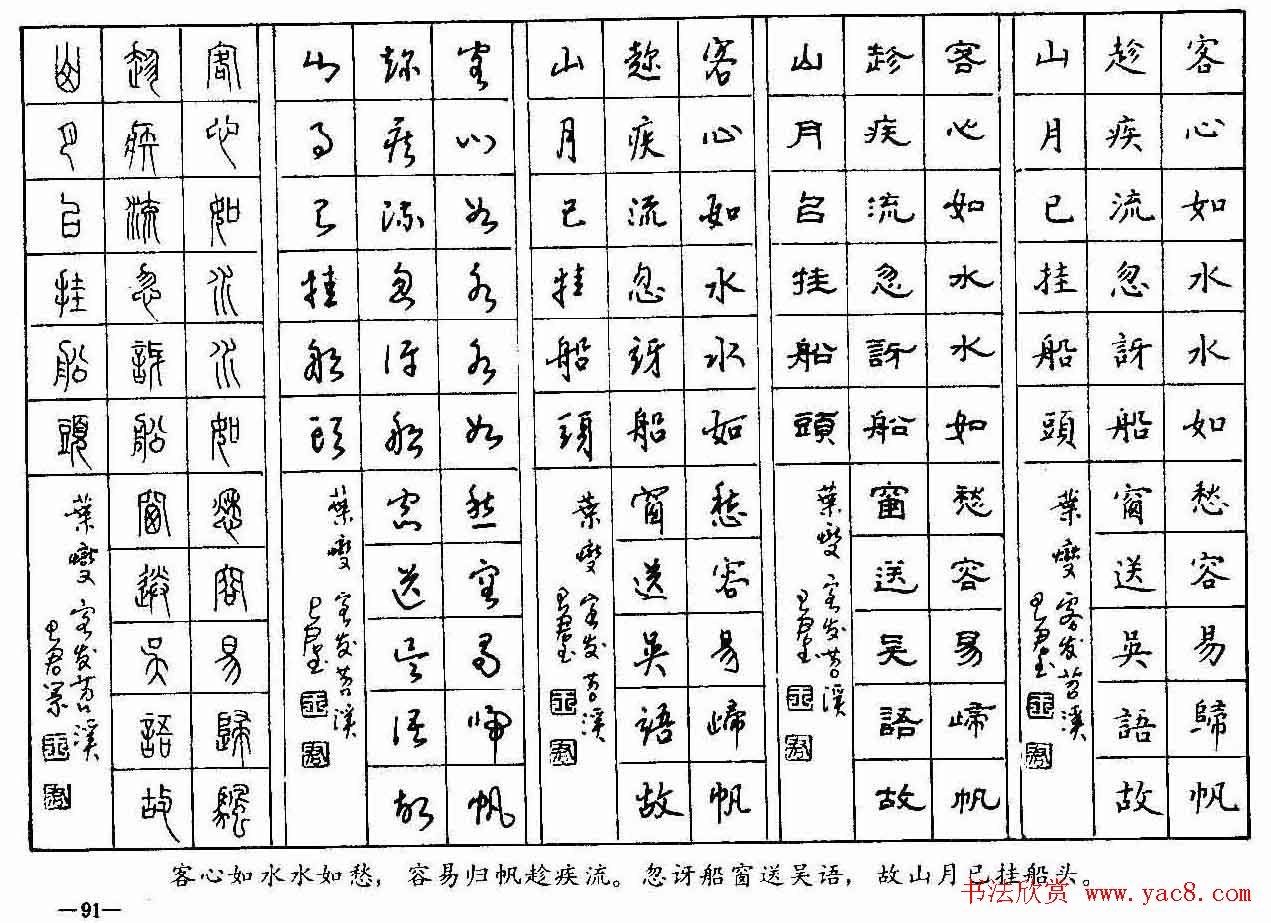 客心如水水如愁容易歸帆
趁疾流忽訝船窗送吳語故
山月已挂船頭
葉燮 客发苕溪
客心如水水如愁容易歸帆
趁疾流忽訝船窗送吳語故
山月已挂船頭
葉燮 客发苕溪
客心如水水如愁容易歸帆
趁疾流忽訝船窗送吳語故
山月已挂船頭
葉燮 客发苕溪
客心如水水如愁容易歸帆
趁疾流忽訝船窗送吳語故
山月已挂船頭
葉燮 客发苕溪
客心如水水如愁容易歸帆
趁疾流忽訝船窗送吳語故
山月已挂船頭
葉燮 客发苕溪
客心如水水如愁，容易归帆趁疾流。忽讶船窗送吴语，故山月已挂船头。
书法欣赏 www.yac8.com
—91—